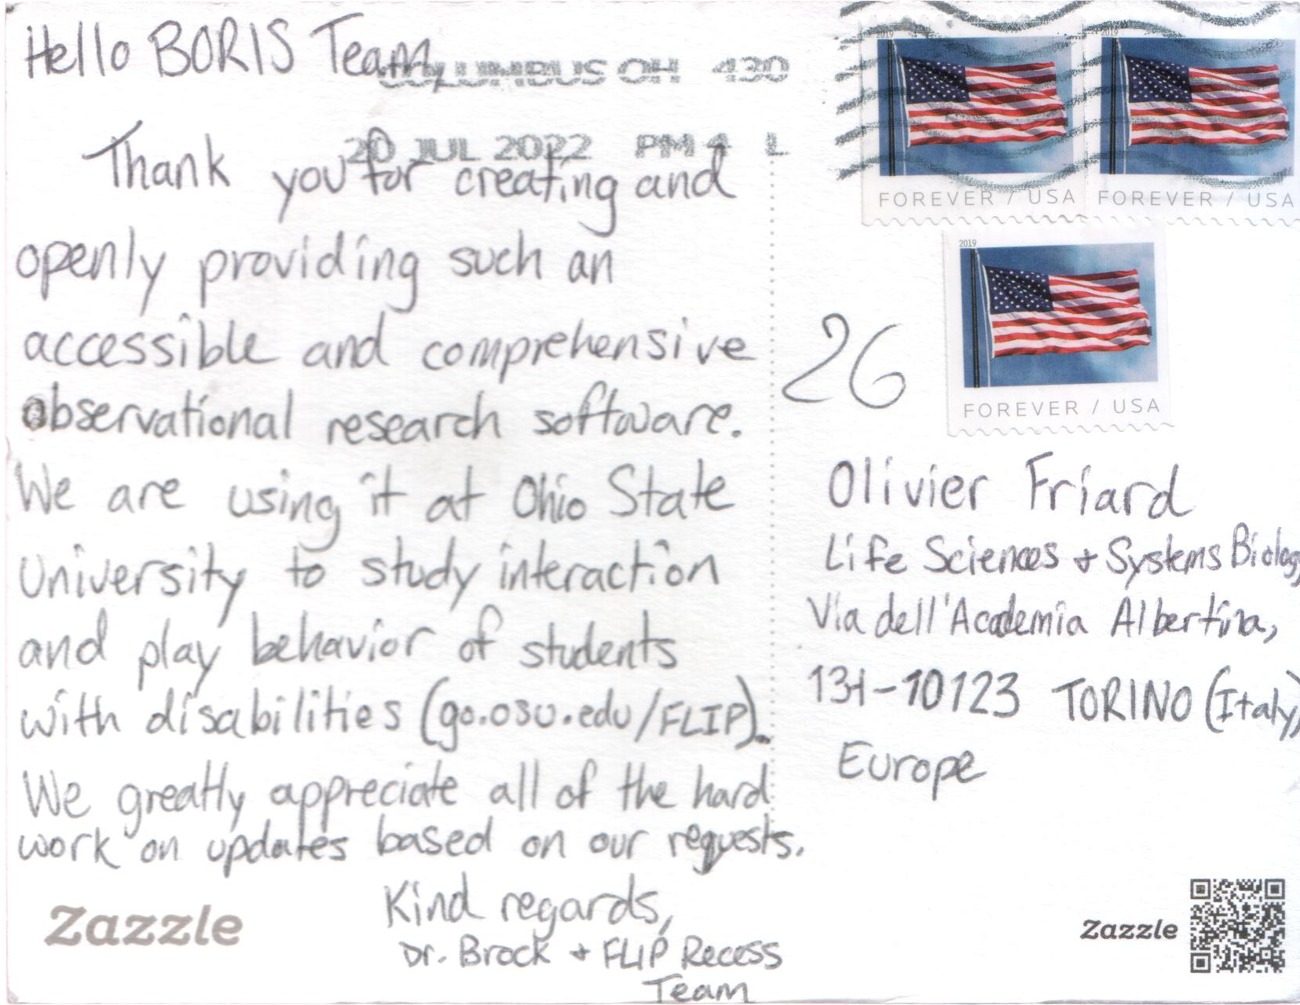 Hello BORIS Team,
COLUMBUS OH 430
20 JUL 2022 PM 4 L
Thank you for creating and
openly providing such an
accessible and comprehensive
observational research software.
We are using it at Ohio State
University to study interaction
and play behavior of students
with disabilities (go.osu.edu/FLIP).
We greatly appreciate all of the hard
work on updates based on our requests.
Kind regards,
Dr. Brock + FLIP Recess
Team
Zazzle
2019
FOREVER / USA
2019
FOREVER / USA
2019
FOREVER / USA
26
Olivier Friard
Life Sciences + Systems Biology
Via dell'Accademia Albertina,
13-10123 TORINO (Italy)
Europe
Zazzle